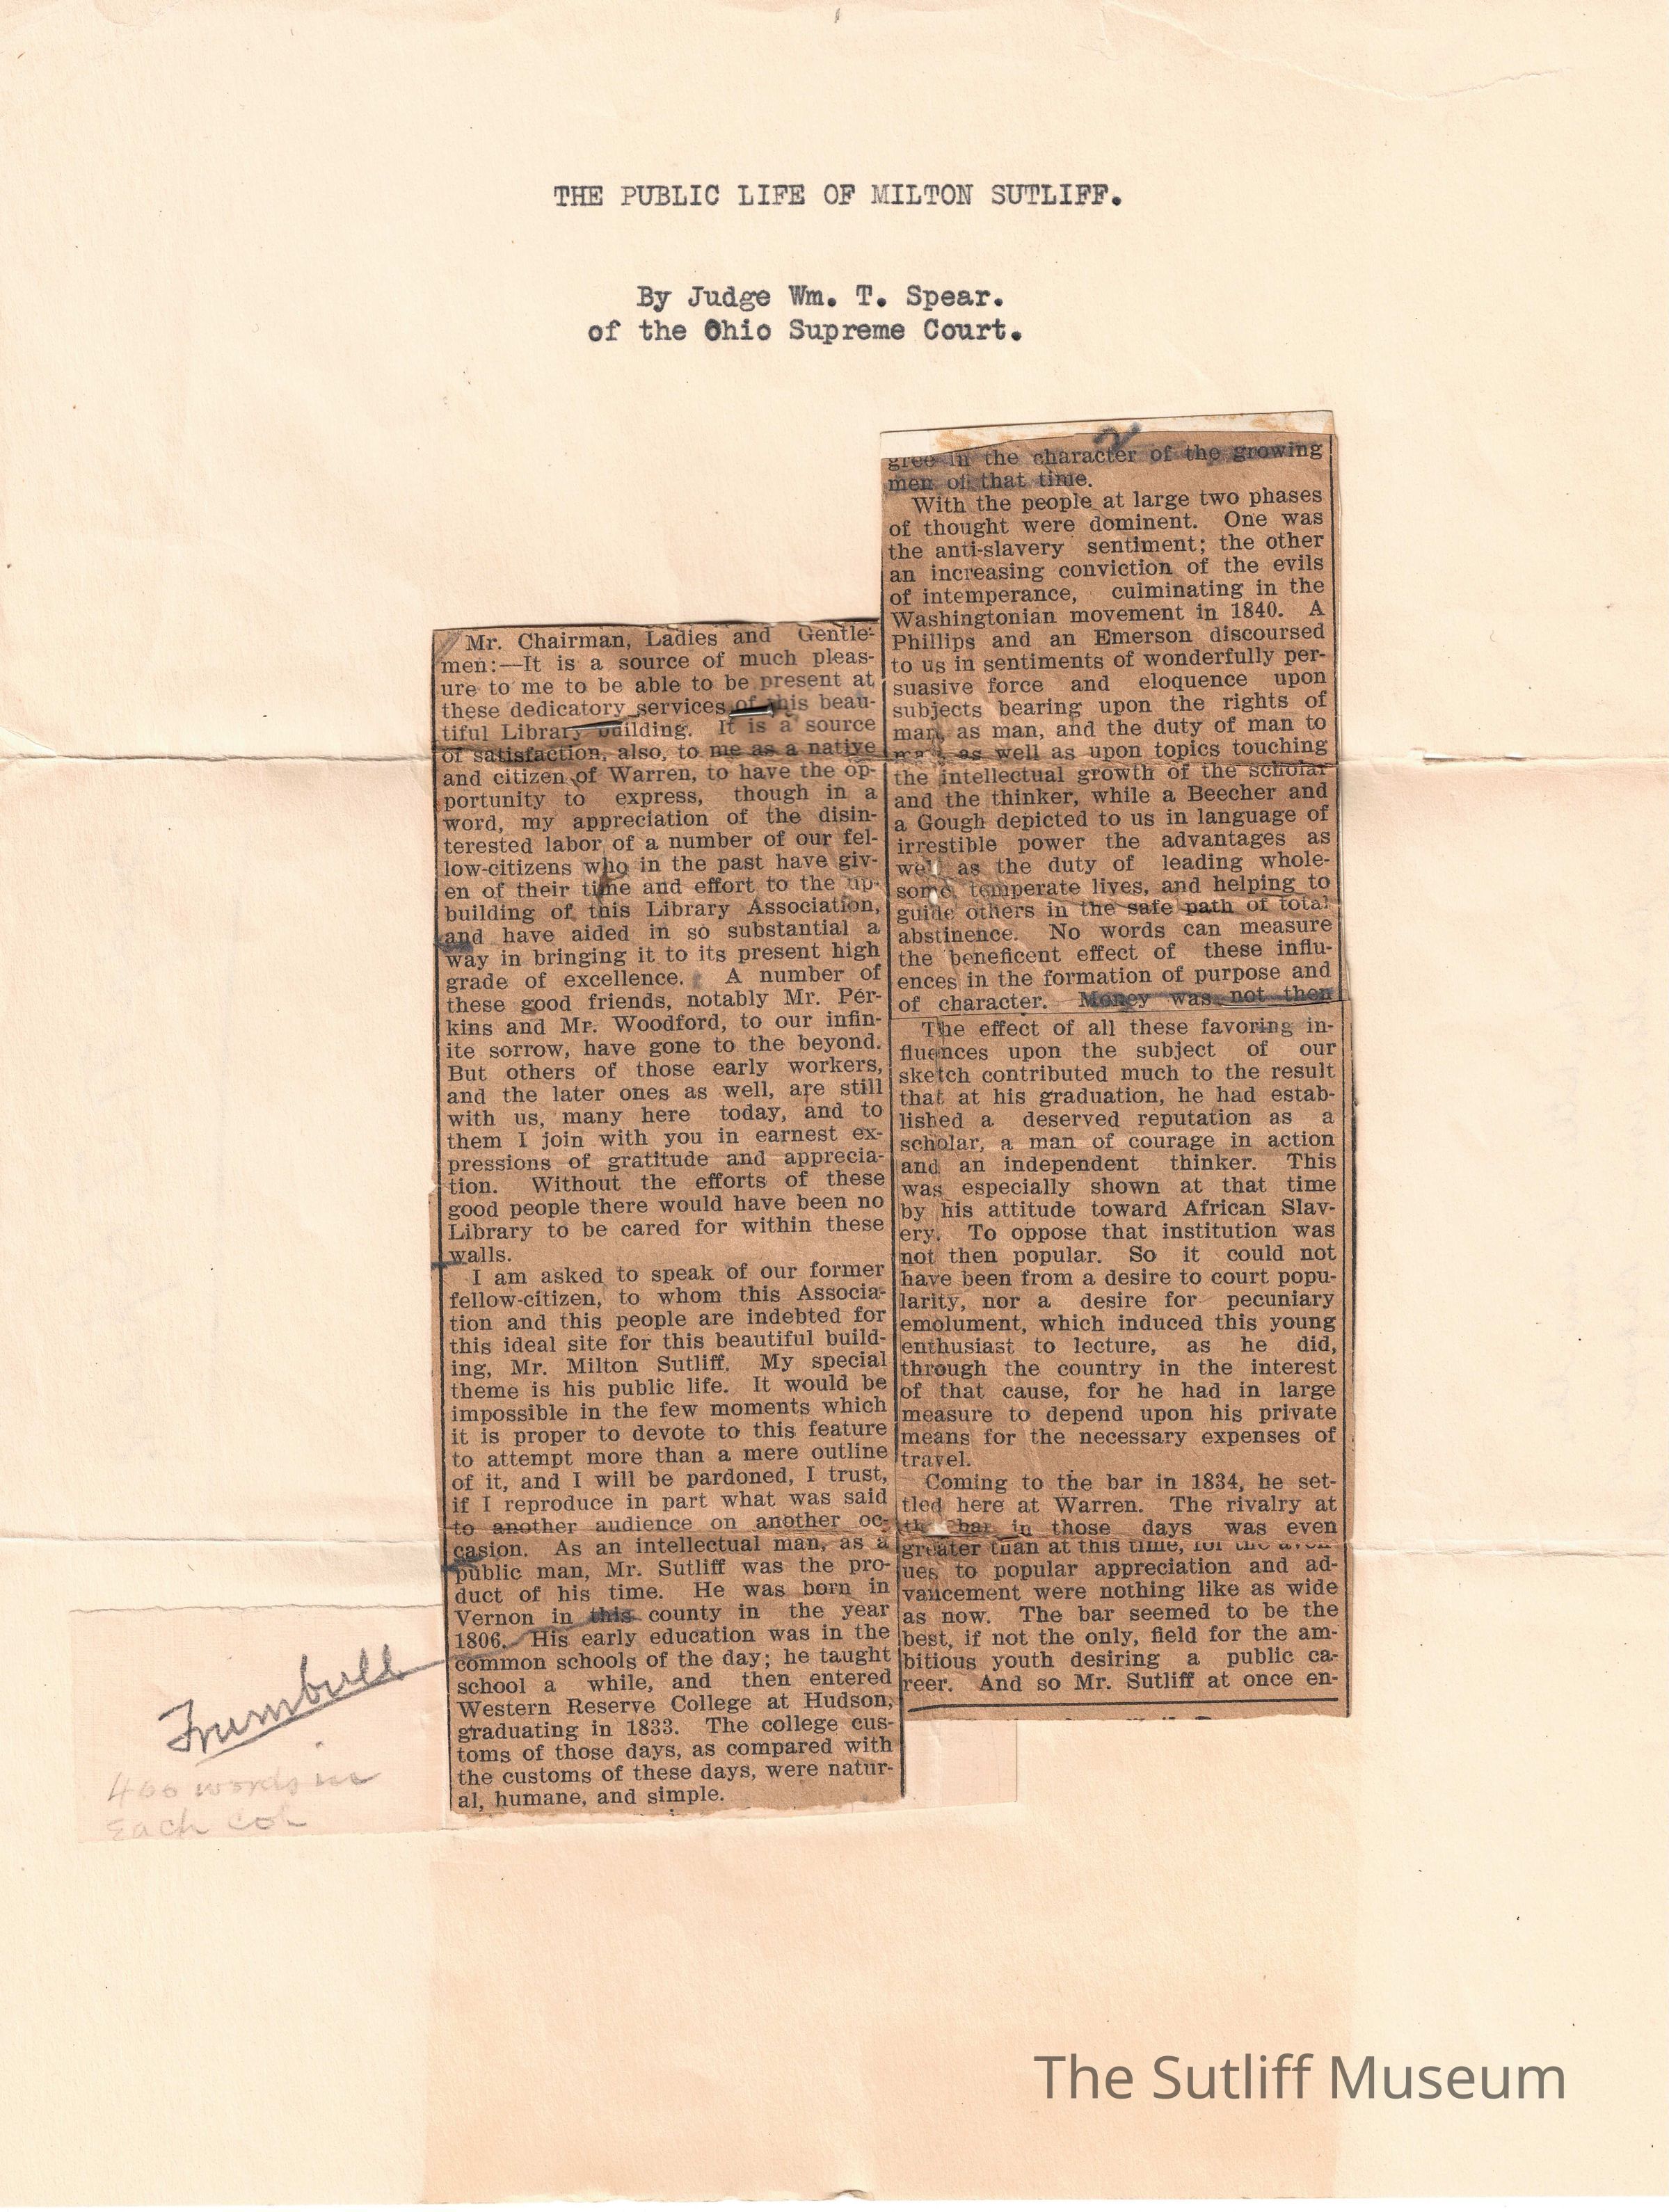 THE PUBLIC LIFE OF MILTON SUTLIFF.
By Judge Wm. T. Spear.
of the Ohio Supreme Court.
Mr. Chairman, Ladies and Gentle-
men:—It is a source of much pleas-
ure to me to be able to be present at
these dedicatory services of this beau-
tiful Library building. It is a source
of satisfaction, also, to me as a native
and citizen of Warren, to have the op-
portunity to express, though in a
word, my appreciation of the disin-
terested labor of a number of our fel-
low-citizens who in the past have giv-
en of their time and effort to the up-
building of this Library Association,
and have aided in so substantial a
way in bringing it to its present high
grade of excellence. A number of
these good friends, notably Mr. Per-
kins and Mr. Woodford, to our infin-
ite sorrow, have gone to the beyond.
But others of those early workers,
and the later ones as well, are still
with us, many here today, and to
them I join with you in earnest ex-
pressions of gratitude and apprecia-
tion. Without the efforts of these
good people there would have been no
Library to be cared for within these
walls.
I am asked to speak of our former
fellow-citizen, to whom this Associa-
tion and this people are indebted for
this ideal site for this beautiful build-
ing, Mr. Milton Sutliff. My special
theme is his public life. It would be
impossible in the few moments which
it is proper to devote to this feature
to attempt more than a mere outline
of it, and I will be pardoned, I trust,
if I reproduce in part what was said
to another audience on another oc-
casion. As an intellectual man, as a
public man, Mr. Sutliff was the pro-
duct of his time. He was born in
Vernon in this county in the year
1806. His early education was in the
common schools of the day; he taught
school a while, and then entered
Western Reserve College at Hudson,
graduating in 1833. The college cus-
toms of those days, as compared with
the customs of these days, were natur-
al, humane, and simple.
Trumbull
400 words in
Each col
2
gree in the character of the growing
men of that time.
With the people at large two phases
of thought were dominent. One was
the anti-slavery sentiment; the other
an increasing conviction of the evils
of intemperance, culminating in the
Washingtonian movement in 1840. A
Phillips and an Emerson discoursed
to us in sentiments of wonderfully per-
suasive force and eloquence upon
subjects bearing upon the rights of
man, as man, and the duty of man to
man as well as upon topics touching
the intellectual growth of the scholar
and the thinker, while a Beecher and
a Gough depicted to us in language of
irrestible power the advantages as
well as the duty of leading whole-
some temperate lives, and helping to
guide others in the safe path of total
abstinence. No words can measure
the beneficent effect of these influ-
ences in the formation of purpose and
of character. Money was not then
The effect of all these favoring in-
fluences upon the subject of our
sketch contributed much to the result
that at his graduation, he had estab-
lished a deserved reputation as a
scholar, a man of courage in action
and an independent thinker. This
was especially shown at that time
by his attitude toward African Slav-
ery. To oppose that institution was
not then popular. So it could not
have been from a desire to court popu-
larity, nor a desire for pecuniary
emolument, which induced this young
enthusiast to lecture, as he did,
through the country in the interest
of that cause, for he had in large
measure to depend upon his private
means for the necessary expenses of
travel.
Coming to the bar in 1834, he set-
tled here at Warren. The rivalry at
the bar in those days was even
greater than at this time, for the aven-
ues to popular appreciation and ad-
vancement were nothing like as wide
as now. The bar seemed to be the
best, if not the only, field for the am-
bitious youth desiring a public ca-
reer. And so Mr. Sutliff at once en-
The Sutliff Museum